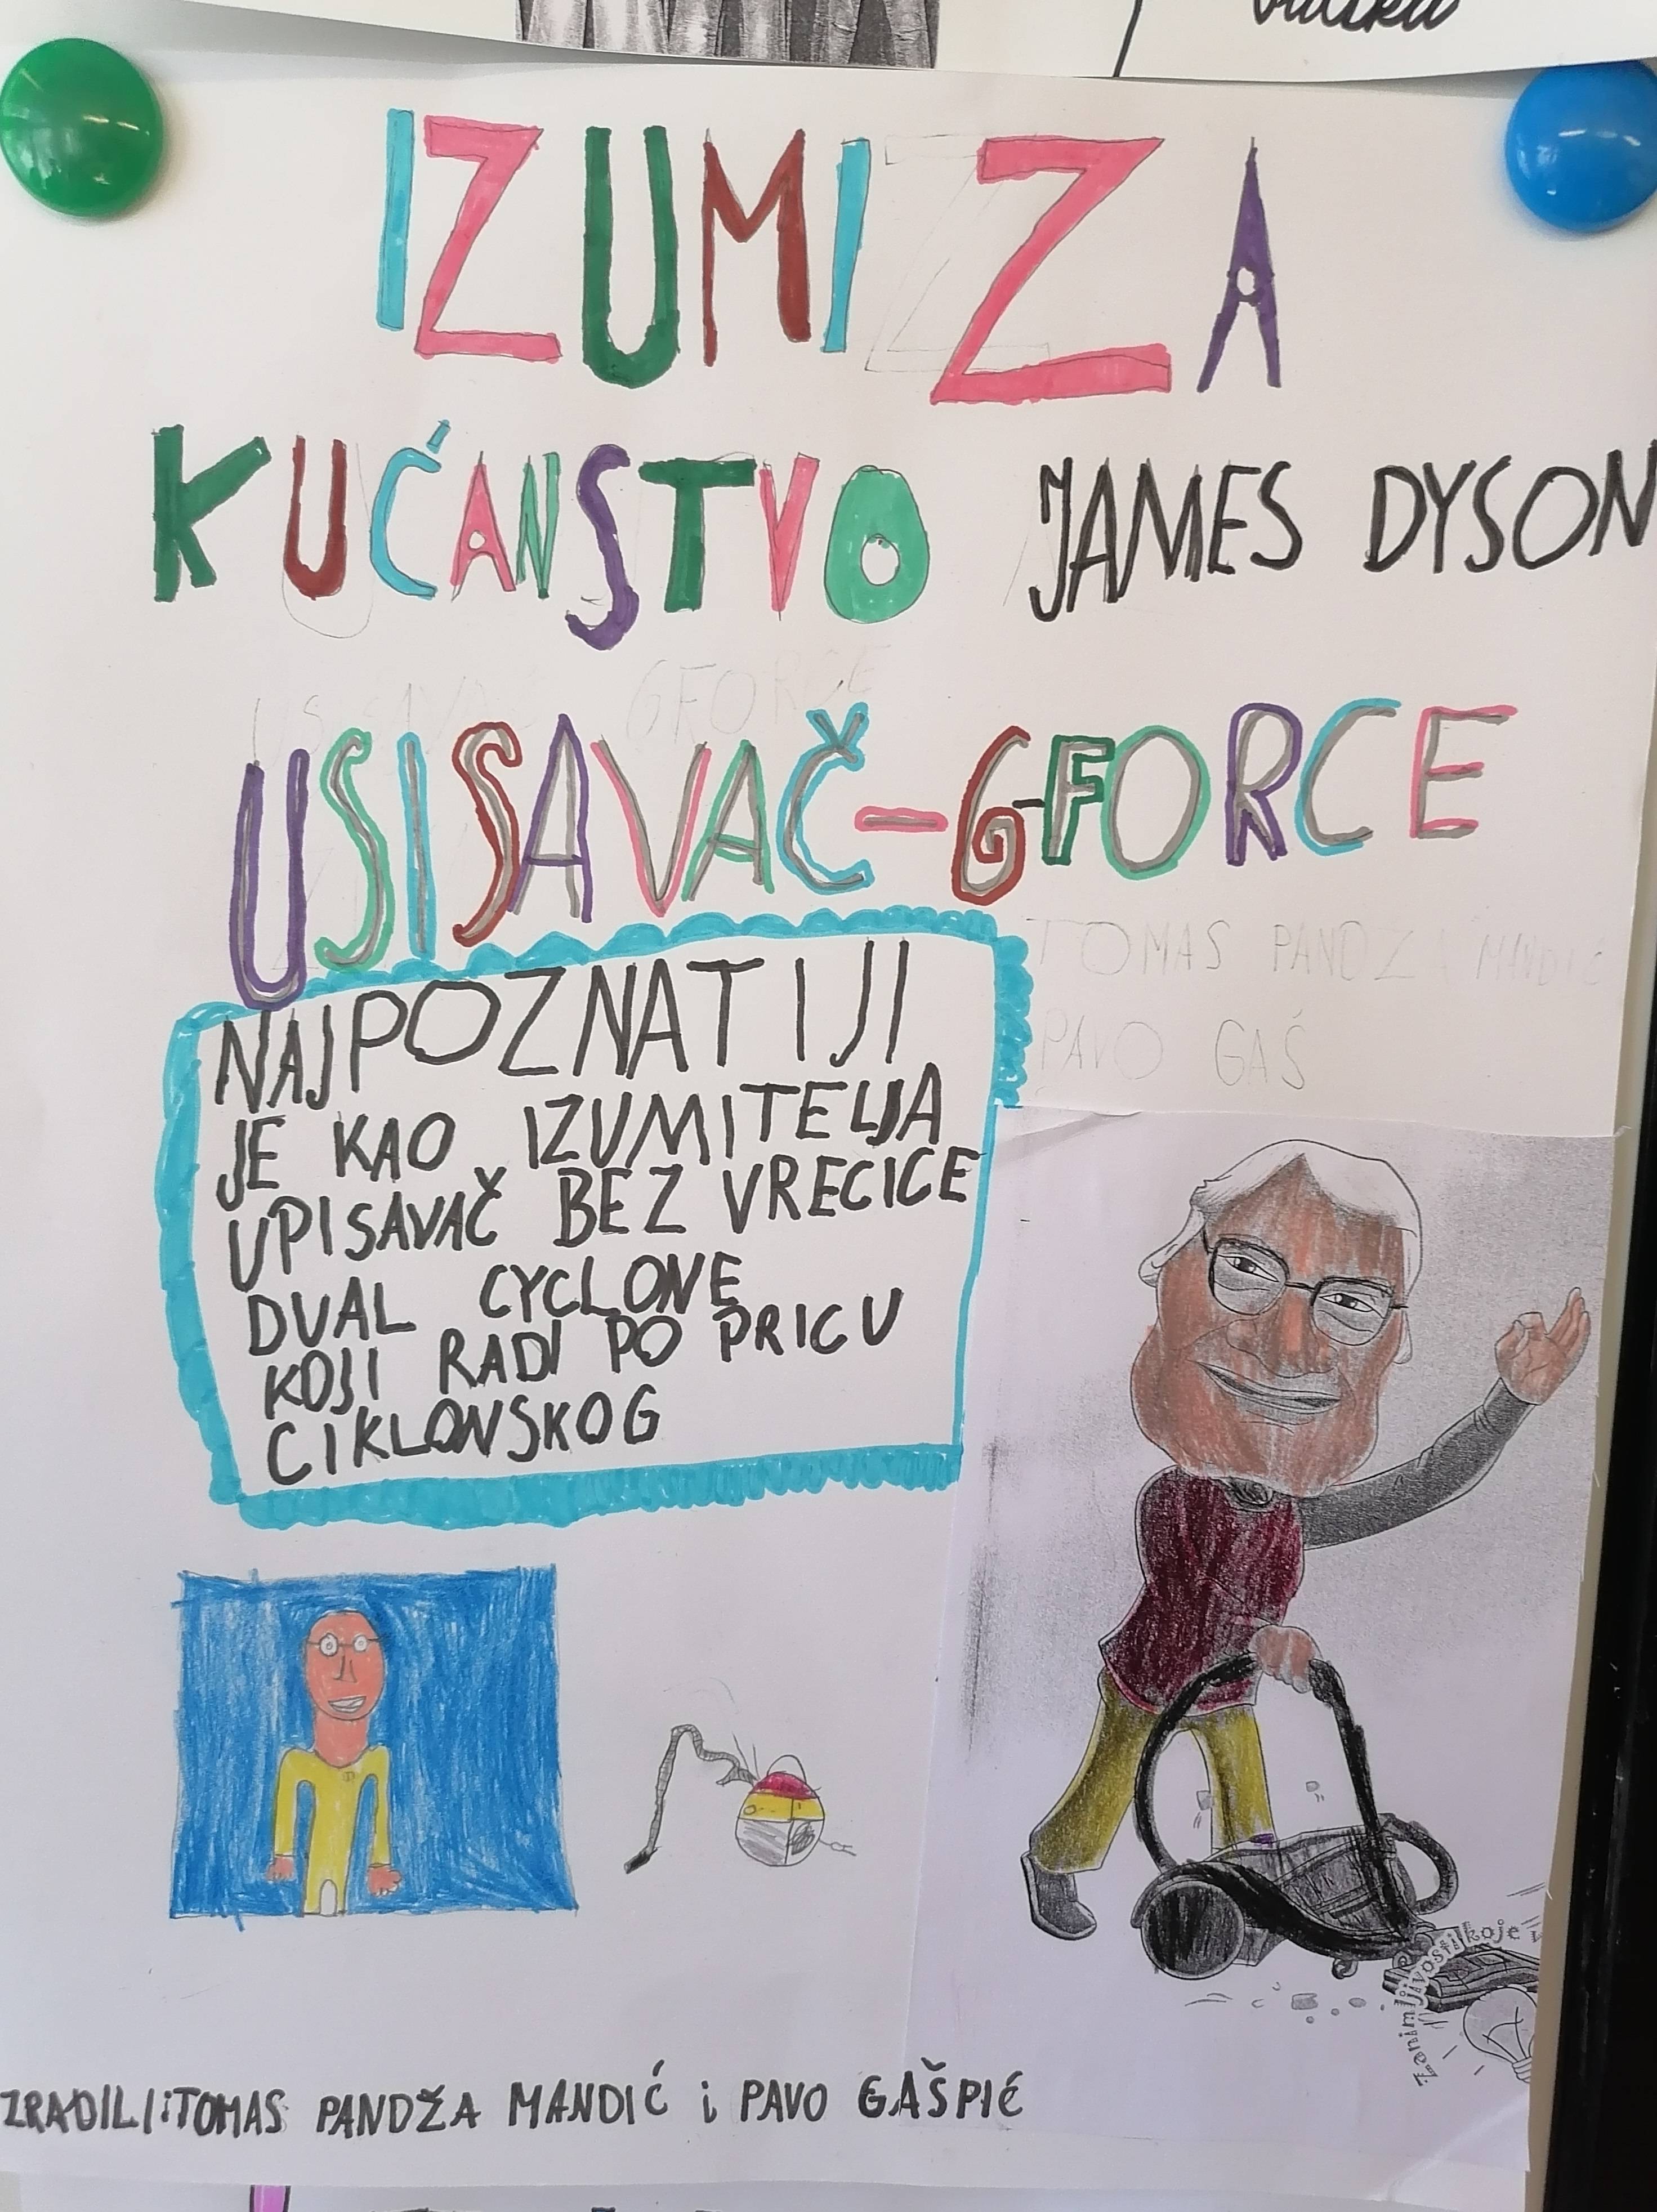 IZUMI ZA
KUĆANSTVO JAMES DYSON
USISAVAČ GFORCE
USISAVAČ-G-FORCE
TOMAS PANDZA MANDIC
PAVO GAŠ
NAJPOZNATIJI
JE KAO IZUMITELJA
UPISAVAČ BEZ VRECICE
DVAL CYCLONE
KOJI RADI PO PRICU
CIKLONSKOG
Zanimljivosti koje
ZRADILI:TOMAS PANDŽA MANDIĆ i PAVO GAŠPIĆ